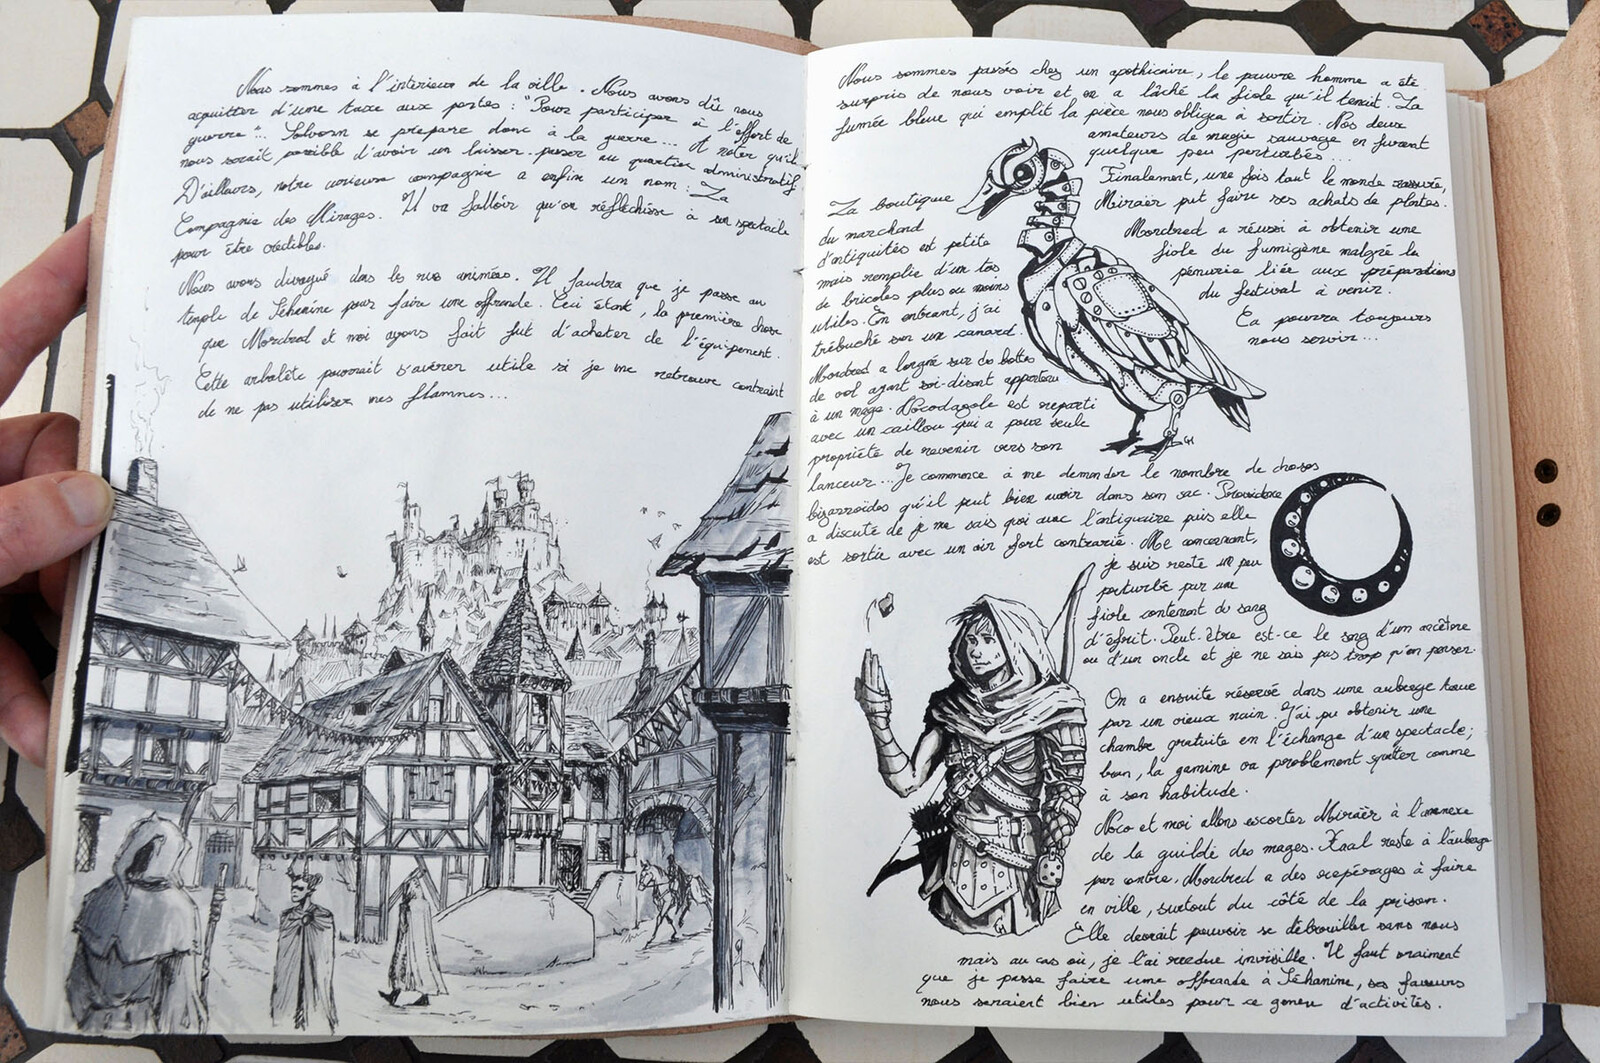 Nous sommes à l'intérieur de la ville. Nous avons dû nous
acquitter d'une taxe aux portes : "Pour participer à l'effort de
guerre"... Solvorn se prépare donc à la guerre... A noter qu'il
nous serait possible d'avoir un laisser-passer au quartier administratif
D'ailleurs, notre curieuse compagnie a enfin un nom : La
Compagnie des Mirages. Il va falloir qu'on réfléchisse à un spectacle
pour être crédibles.
Nous avons divagué dans les rues animées. Il faudra que je passe au
temple de Séhanine pour faire une offrande. Ceci étant, la première chose
que Mordred et moi ayons fait fut d'acheter de l'équipement.
Cette arbalète pourrait s'avérer utile si je me retrouve contraint
de ne pas utiliser mes flammes...
Nous sommes passés chez un apothicaire, le pauvre homme a été
surpris de nous voir et en a lâché la fiole qu'il tenait. La
fumée bleue qui emplit la pièce nous obligea à sortir. Nos deux
amateurs de magie sauvage en furent
quelque peu perturbés...
Finalement, une fois tout le monde rassuré,
Miraër put faire ses achats de plantes.
Mordred a réussi à obtenir une
fiole du fumigène malgré la
pénurie liée aux préparations
du festival à venir.
Ca pourra toujours
nous servir...
La boutique
du marchand
d'antiquités est petite
mais remplie d'un tas
de bricoles plus ou moins
utiles. En entrant, j'ai
trébuché sur un canard.
Mordred a lorgné sur des bottes
de vol ayant soi-disant appartenu
à un mage. Nocodagole est reparti
avec un caillou qui a pour seule
propriété de revenir vers son
lanceur... Je commence à me demander le nombre de choses
bizarroïdes qu'il peut bien avoir dans son sac.
a discuté de je ne sais quoi avec l'antiquaire puis elle
est sortie avec un air fort contrarié. Me concernant,
je suis resté un peu
perturbé par une
fiole contenant du sang
d'éfrit. Peut-être est-ce le sang d'un ancêtre
ou d'un oncle et je ne sais pas trop qu'en penser.
On a ensuite réservé dans une auberge tenue
par un vieux nain. J'ai pu obtenir une
chambre gratuite en l'échange d'un spectacle;
bon, la gamine va problement squatter comme
à son habitude.
Noco et moi allons escorter Miraër à l'annexe
de la guilde des mages. Xaal reste à l'auberge
par contre, Mordred a des repérages à faire
en ville, surtout du côté de la prison.
Elle devrait pouvoir se débrouiller sans nous
mais au cas où, je l'ai rendue invisible. Il faut vraiment
que je passe faire une offrande à Séhanine, ses faveurs
nous seraient bien utiles pour ce genre d'activités.